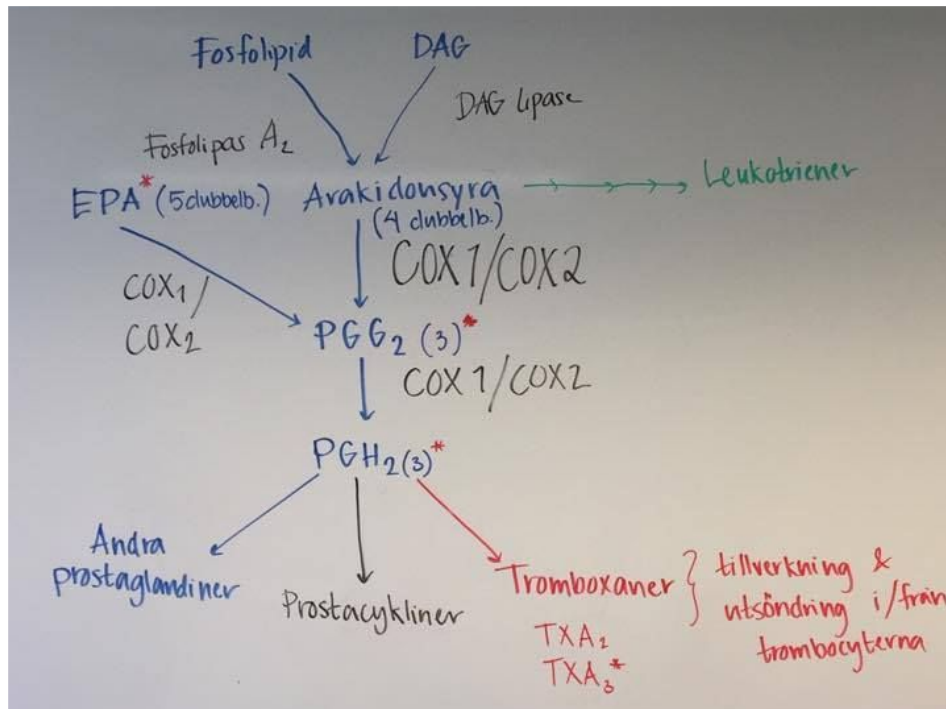 Fosfolipid
DAG
DAG lipase
Fosfolipas A₂
EPA* (5 dubbelb.)
Arakidonsyra
(4 dubbelb.)
Leukotriener
COX1/
COX2
COX1/COX2
PGG₂ (3)*
COX1/COX2
PGH₂(3)*
Andra
prostaglandiner
Prostacykliner
Tromboxaner
TXA₂
TXA₃*
tillverkning &
utsöndring i/från
trombocyterna